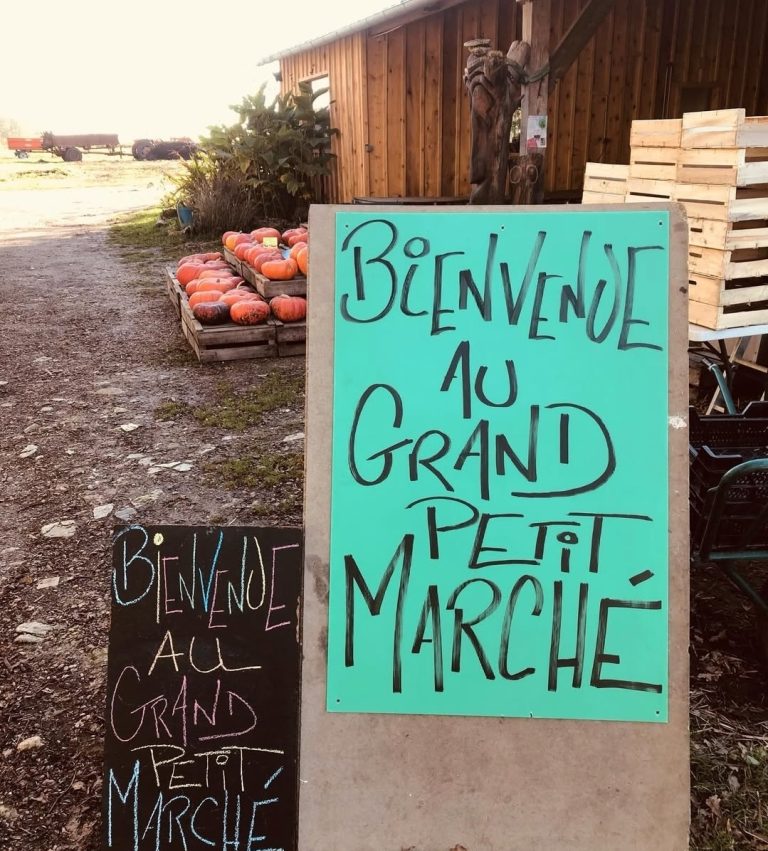 BiENVENUE
AU
GRAND
PETiT
MARCHÉ
BiENVENUE
AU
GRAND
PETiT
MARCHÉ